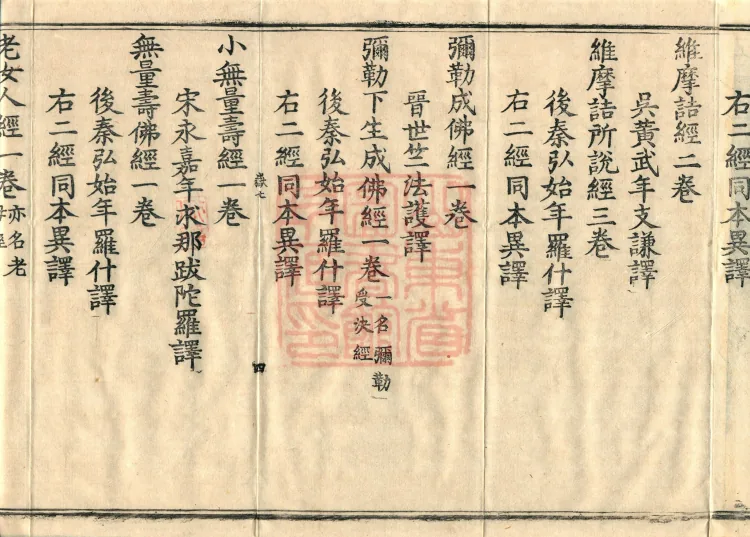 右二經同本異譯
維摩詰經二卷
吳黃武年支謙譯
維摩詰所說經三卷
後秦弘始年羅什譯
右二經同本異譯
彌勒成佛經一卷
晉世竺法護譯
彌勒下生成佛經一卷一名彌勒
受決經
後秦弘始年羅什譯
右二經同本異譯
小無量壽經一卷
宋永嘉年求那跋陀羅譯
無量壽佛經一卷
後秦弘始年羅什譯
右二經同本異譯
老女人經一卷亦名老
四